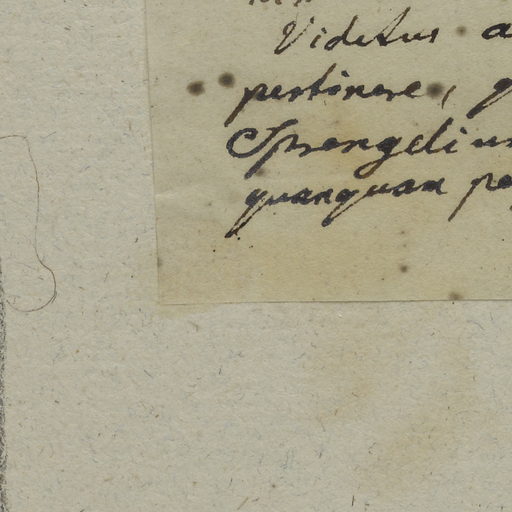 Videtur a
pertinere, q
Sprengeliu
quanquam pe